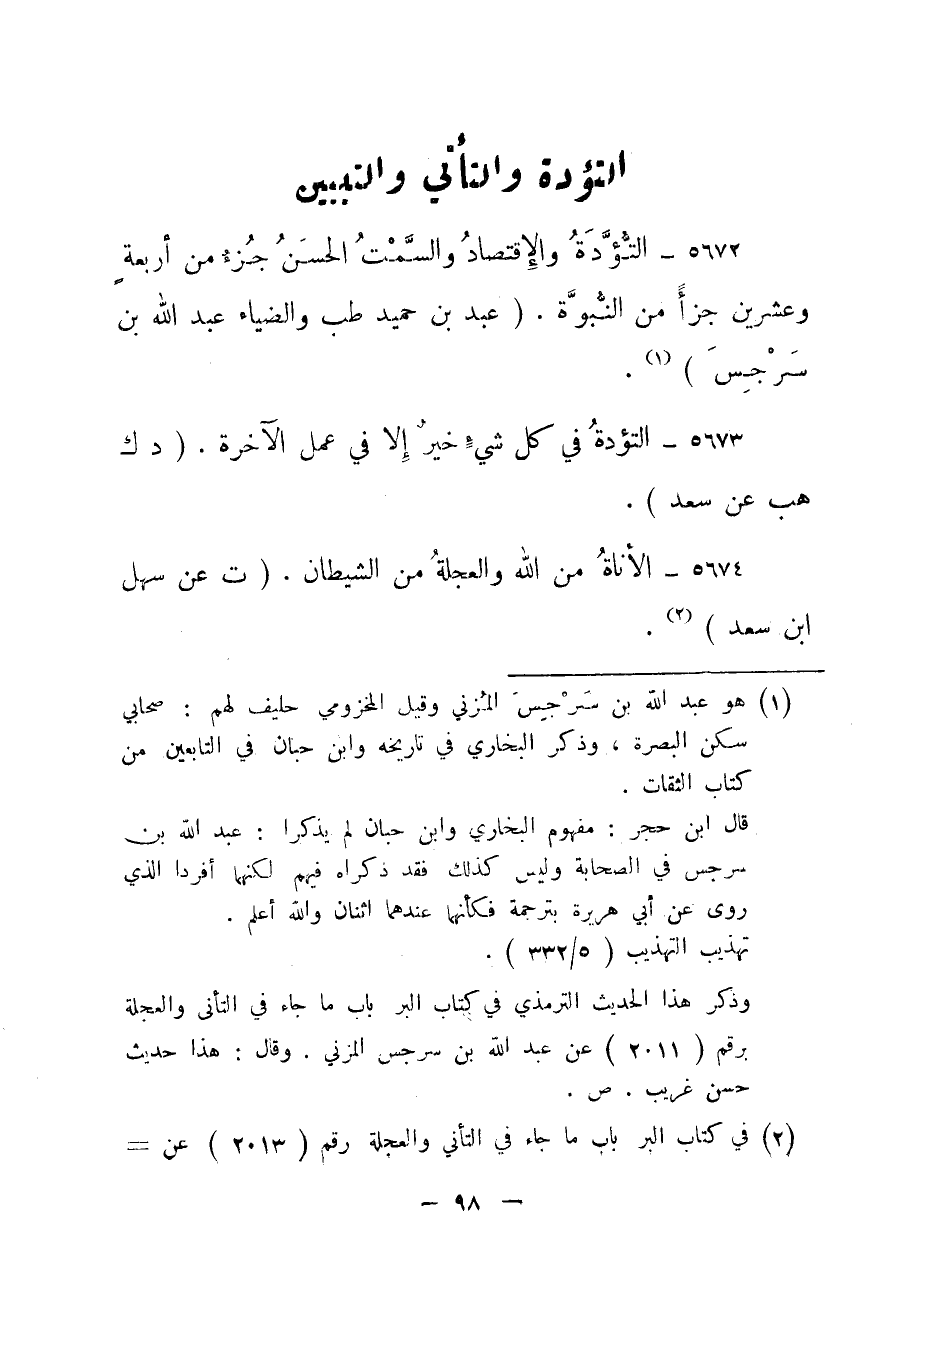 التؤدة والتأني والتبيين
٥٦٧٢ ــ التُّؤَّدَةُ والإِقتصادُ والسَّمْتُ الحسَنُ جُزءٌ من أربعةٍ
وعشرين جزأً من النُّبوَّة . ( عبد بن حميد طب والضياء عبد الله بن
سَرْجِسَ ) (١) .
٥٦٧٣ ــ التؤدةُ في كل شيءٍ خيرٌ إِلا في عمل الآخرة . ( د ك
هب عن سعد ) .
٥٦٧٤ ــ الأناةُ من الله والعجلةُ من الشيطان . ( ت عن سهل
ابن سعد ) (٢) .
(١) هو عبد الله بن سَرْجِسَ المُزني وقيل المخزومي حليف لهم : صحابي
سكن البصرة ، وذكر البخاري في تاريخه وابن حبان في التابعين من
كتاب الثقات .
قال ابن حجر : مفهوم البخاري وابن حبان لم يذكرا : عبد الله بن
سرجس في الصحابة وليس كذلك فقد ذكراه فيهم لكنها أفردا الذي
روى عن أبي هريرة بترجمة فكأنها عندهما اثنان والله أعلم .
تهذيب التهذيب ( ٣٣٢/٥ ) .
وذكر هذا الحديث الترمذي في كتاب البر باب ما جاء في التأنى والعجلة
برقم ( ٢٠١١ ) عن عبد الله بن سرجس المزني . وقال : هذا حديث
حسن غريب . ص .
(٢) في كتاب البر باب ما جاء في التأني والعجلة رقم ( ٢٠١٣ ) عن =
— ٩٨ —